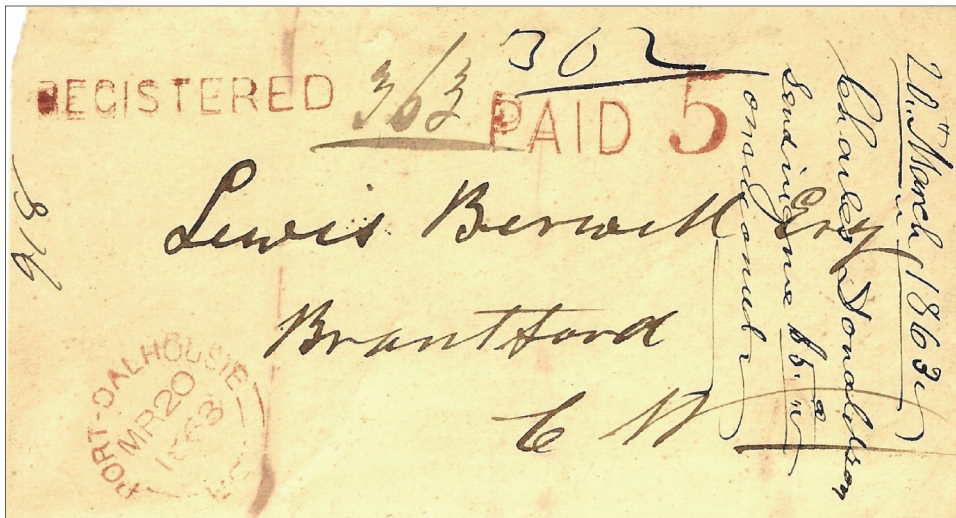 REGISTERED
363
302
PAID 5
Lewis Berwell Esq
Brantford
C W
918
PORT-DALHOUSIE
MR 20
1863
20th March 1863
Charles Donaldson
Sending me
on account